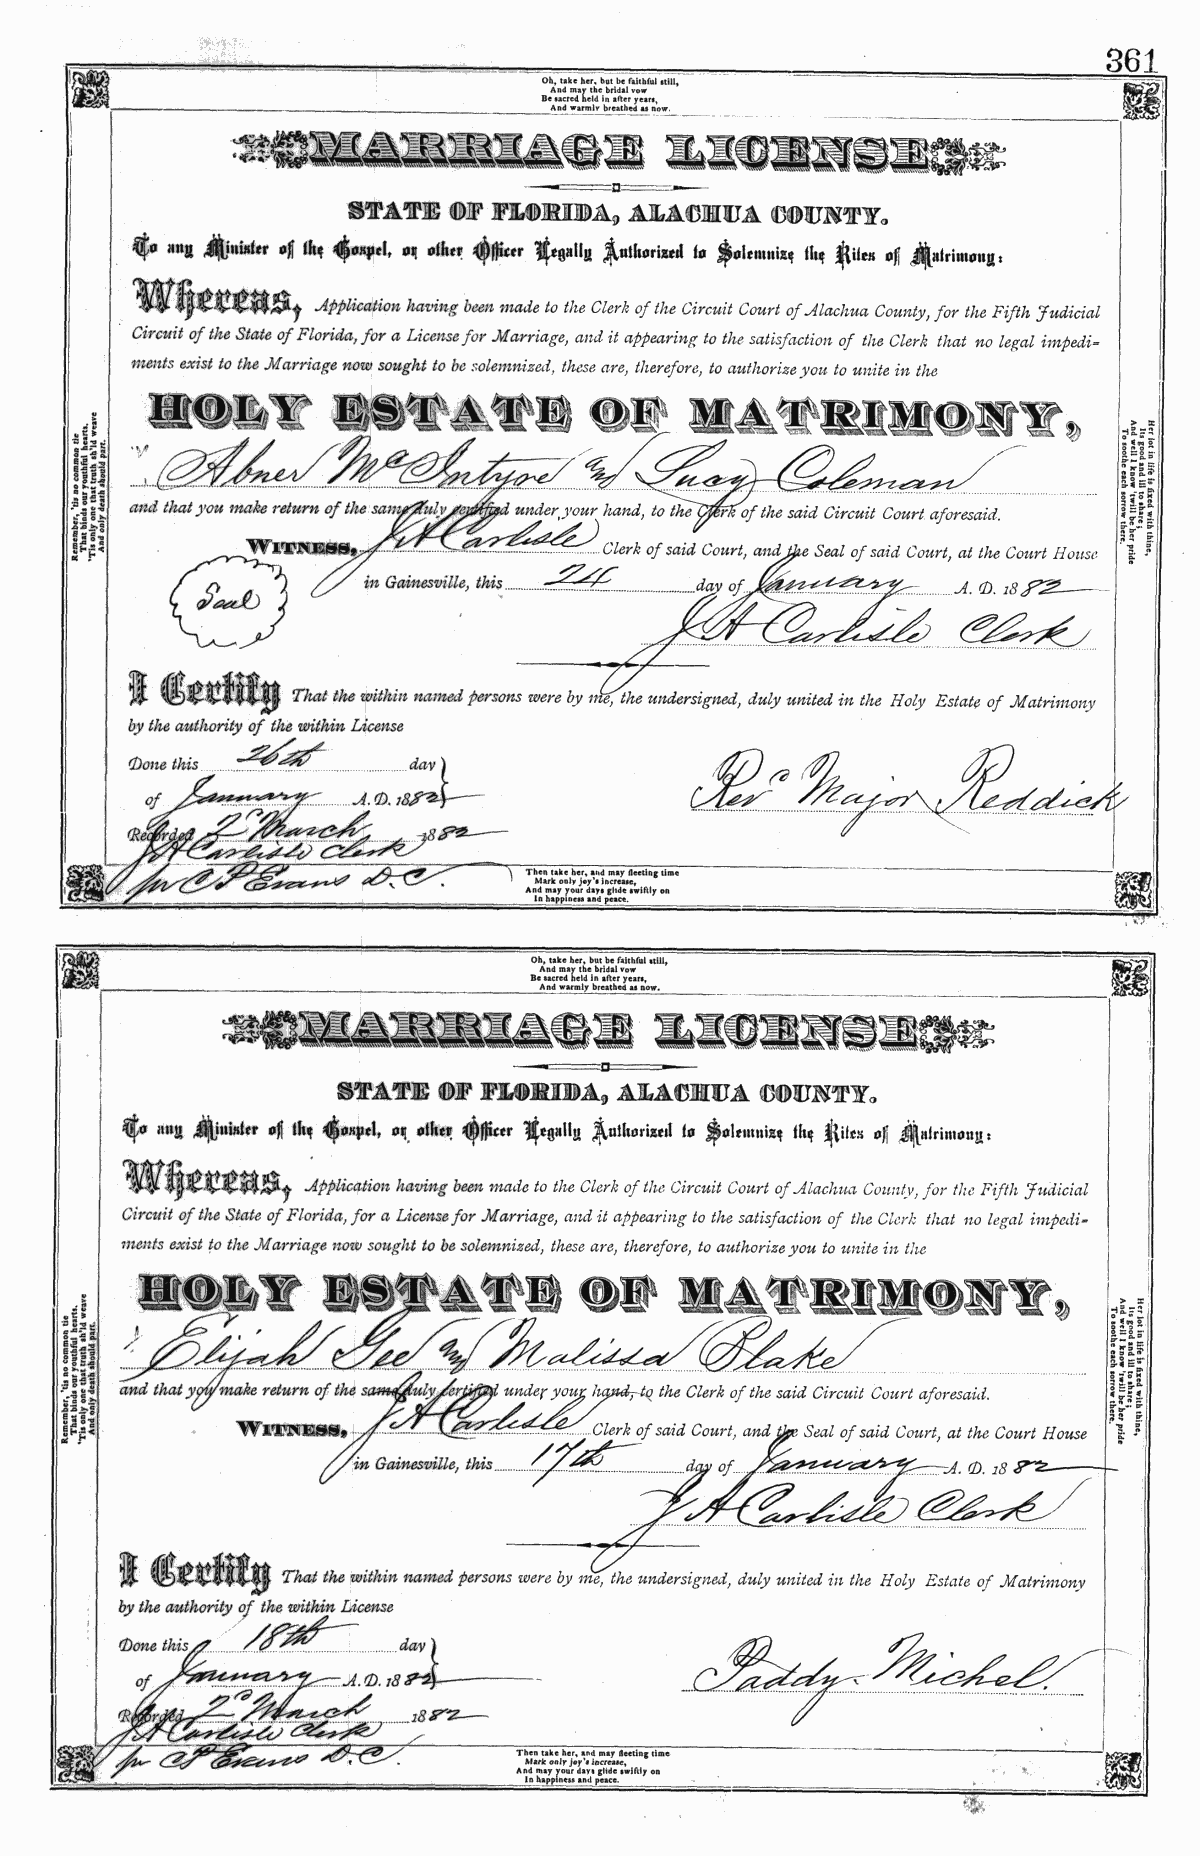 361
Oh, take her, but be faithful still,
And may the bridal vow
Be sacred held in after years,
And warmly breathed as now.
MARRIAGE LICENSE
STATE OF FLORIDA, ALACHUA COUNTY.
To any Minister of the Gospel, or other Officer Legally Authorized to Solemnize the Rites of Matrimony:
Whereas, Application having been made to the Clerk of the Circuit Court of Alachua County, for the Fifth Judicial
Circuit of the State of Florida, for a License for Marriage, and it appearing to the satisfaction of the Clerk that no legal impedi=
ments exist to the Marriage now sought to be solemnized, these are, therefore, to authorize you to unite in the
HOLY ESTATE OF MATRIMONY,
Abner McIntyre and Lucy Coleman
and that you make return of the same duly certified under your hand, to the Clerk of the said Circuit Court aforesaid.
WITNESS, J A Carlisle Clerk of said Court, and the Seal of said Court, at the Court House
Seal
in Gainesville, this 24 day of January A. D. 1882
J A Carlisle Clerk
I Certify That the within named persons were by me, the undersigned, duly united in the Holy Estate of Matrimony
by the authority of the within License
Done this 26th day
of January A. D. 1882
Revd Major Reddick
Recorded 2d March 1882
J A Carlisle Clerk
per C P Evans D. C.
Then take her, and may fleeting time
Mark only joy's increase,
And may your days glide swiftly on
In happiness and peace.
Remember, 'tis no common tie
That binds our youthful hearts,
'Tis only one that truth sh'ld weave
And only death should part.
Her lot in life is fixed with thine,
Its good and ill to share;
And well I know 'twill be her pride
To soothe each sorrow there.
Oh, take her, but be faithful still,
And may the bridal vow
Be sacred held in after years,
And warmly breathed as now.
MARRIAGE LICENSE
STATE OF FLORIDA, ALACHUA COUNTY.
To any Minister of the Gospel, or other Officer Legally Authorized to Solemnize the Rites of Matrimony:
Whereas, Application having been made to the Clerk of the Circuit Court of Alachua County, for the Fifth Judicial
Circuit of the State of Florida, for a License for Marriage, and it appearing to the satisfaction of the Clerk that no legal impedi=
ments exist to the Marriage now sought to be solemnized, these are, therefore, to authorize you to unite in the
HOLY ESTATE OF MATRIMONY,
Elijah Gee and Malissa Blake
and that you make return of the same duly certified under your hand, to the Clerk of the said Circuit Court aforesaid.
WITNESS, J A Carlisle Clerk of said Court, and the Seal of said Court, at the Court House
in Gainesville, this 17th day of January A. D. 1882
J A Carlisle Clerk
I Certify That the within named persons were by me, the undersigned, duly united in the Holy Estate of Matrimony
by the authority of the within License
Done this 18th day
of January A. D. 1882
Paddy Michel.
Recorded 2d March 1882
J A Carlisle Clerk
per C P Evans D. C.
Then take her, and may fleeting time
Mark only joy's increase,
And may your days glide swiftly on
In happiness and peace.
Remember, 'tis no common tie
That binds our youthful hearts,
'Tis only one that truth sh'ld weave
And only death should part.
Her lot in life is fixed with thine,
Its good and ill to share;
And well I know 'twill be her pride
To soothe each sorrow there.